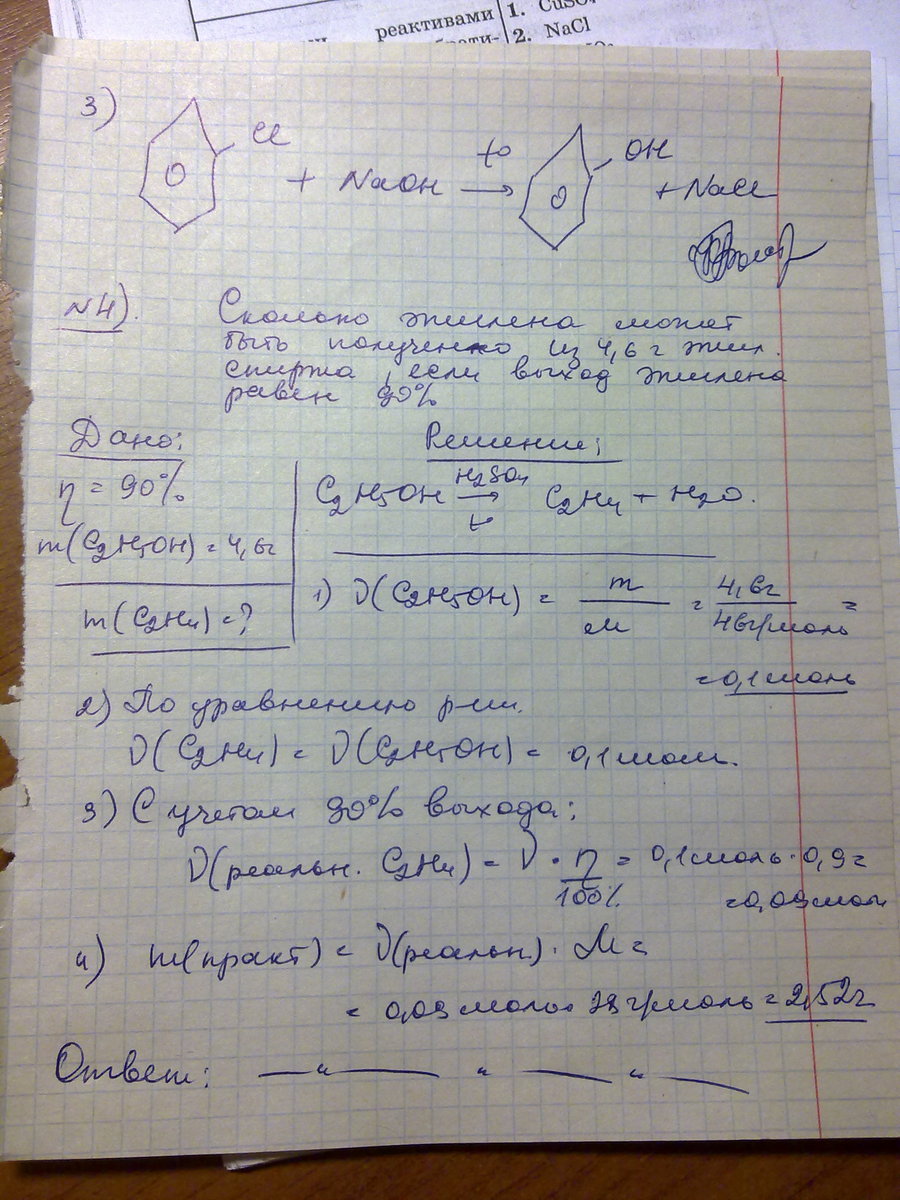 реактивами 1. CuSO₄
2. NaCl
3)
Cl
+ NaOH →
t°
OH
+ NaCl
№4). Сколько этилена может
быть получено из 4,6 г этил.
спирта, если выход этилена
равен 90%
Дано:
η = 90%
m(C₂H₅OH) = 4,6г
m(C₂H₄) = ?
Решение:
C₂H₅OH → C₂H₄ + H₂O.
H₂SO₄
t°
1) ν(C₂H₅OH) = m/M = 4,6г/46г/моль =
= 0,1 моль
2) По уравнению р-ии.
ν(C₂H₄) = ν(C₂H₅OH) = 0,1 моль.
3) С учетом 90% выхода:
ν(реальн. C₂H₄) = ν · η/100% = 0,1 моль · 0,9 =
= 0,09 моль
4) m(практ) = ν(реальн.) · M =
= 0,09 моль · 28 г/моль = 2,52г
Ответ: — " — " — " —